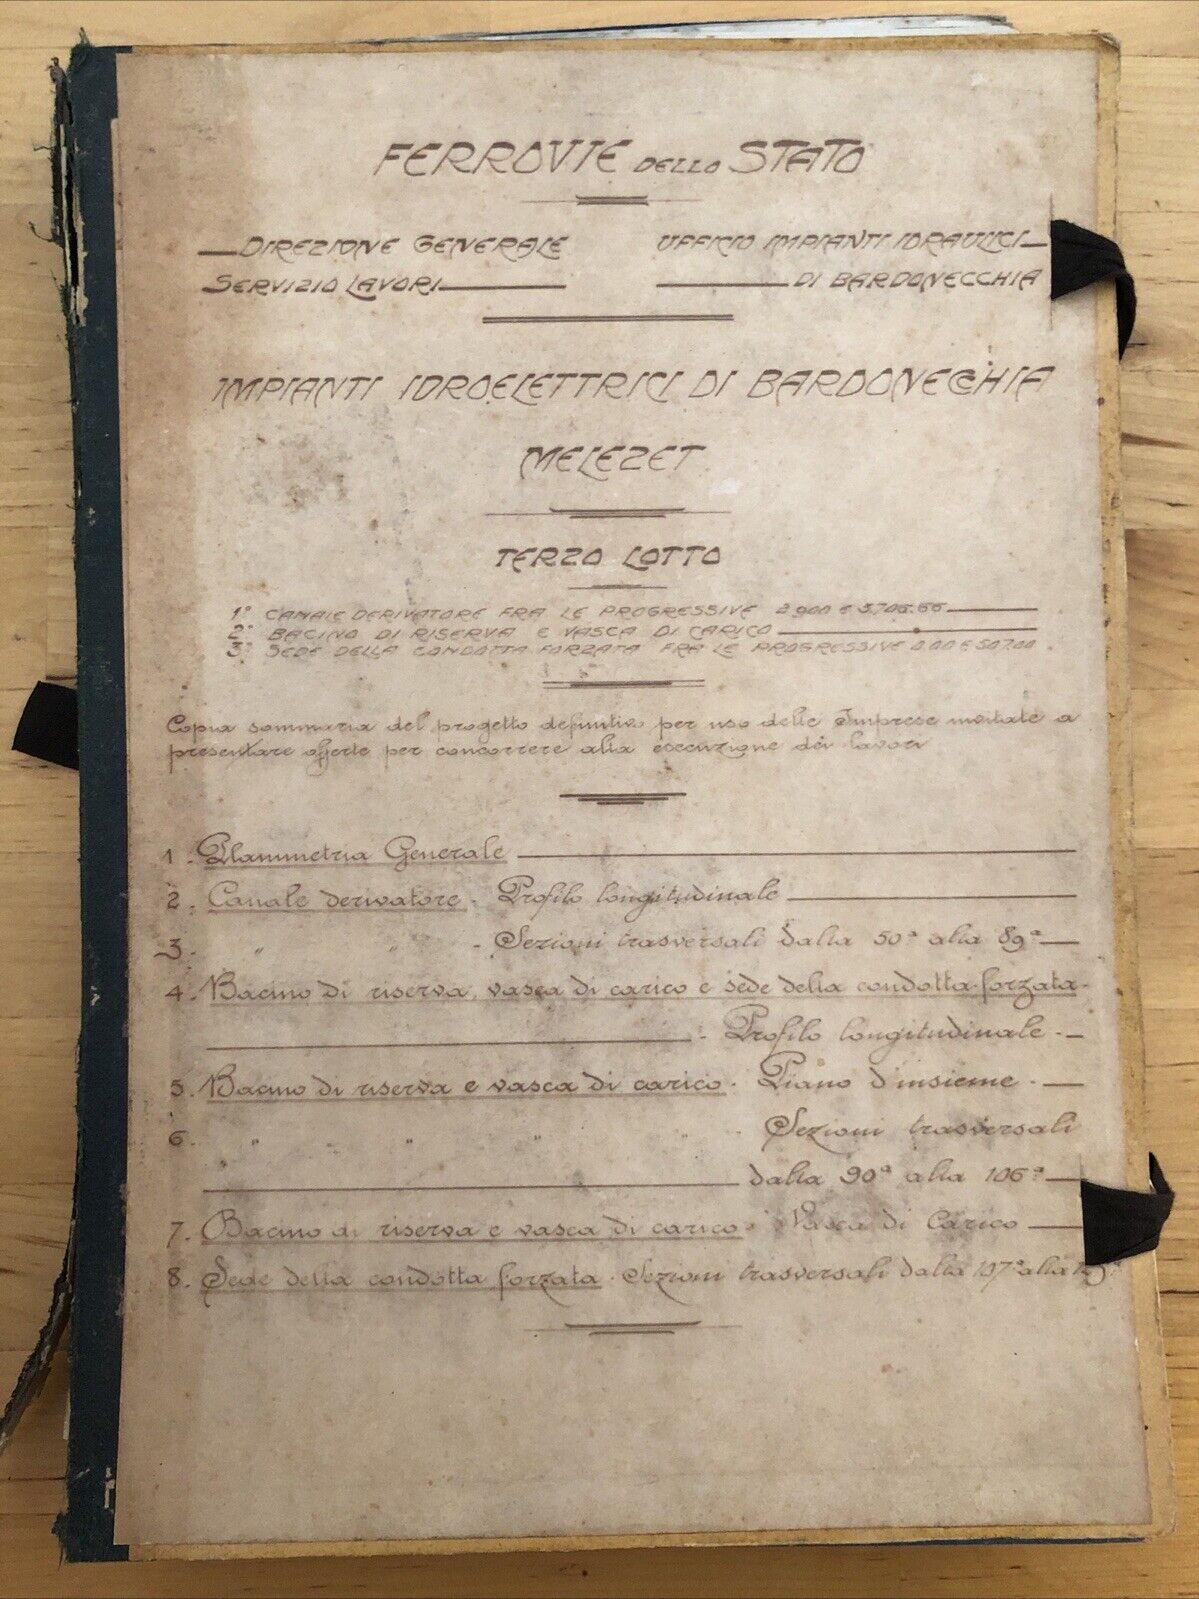 FERROVIE DELLO STATO
DIREZIONE GENERALE
SERVIZIO LAVORI
UFFICIO IMPIANTI IDRAULICI
DI BARDONECCHIA
IMPIANTI IDROELETTRICI DI BARDONECCHIA
MELEZET
TERZO LOTTO
1° CANALE DERIVATORE FRA LE PROGRESSIVE 2.900 E 5,706.66
2° BACINO DI RISERVA E VASCA DI CARICO
3° SEDE DELLA CONDOTTA FORZATA FRA LE PROGRESSIVE 0.00 E 507.00
Copia sommaria del progetto definitivo per uso delle Imprese invitate a
presentare offerte per concorrere alla esecuzione dei lavori
1. Planimetria Generale
2. Canale derivatore. Profilo longitudinale
3. " " - Sezioni trasversali dalla 50ª alla 89ª
4. Bacino di riserva, vasca di carico e sede della condotta forzata -
- Profilo longitudinale -
5. Bacino di riserva e vasca di carico. Piano d'insieme -
6. " " " " - Sezioni trasversali
" dalla 90ª alla 106ª
7. Bacino di riserva e vasca di carico - Vasca di Carico
8. Sede della condotta forzata. Sezioni trasversali dalla 107ª alla